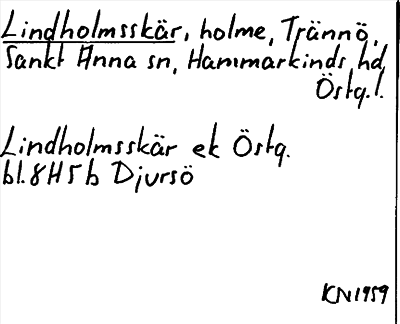 Lindholmsskär, holme, Trännö,
Sankt Anna sn, Hammarkinds hd,
Östg.l.
Lindholmsskär ek Östg.
bl. 8H5b Djursö
KN1959